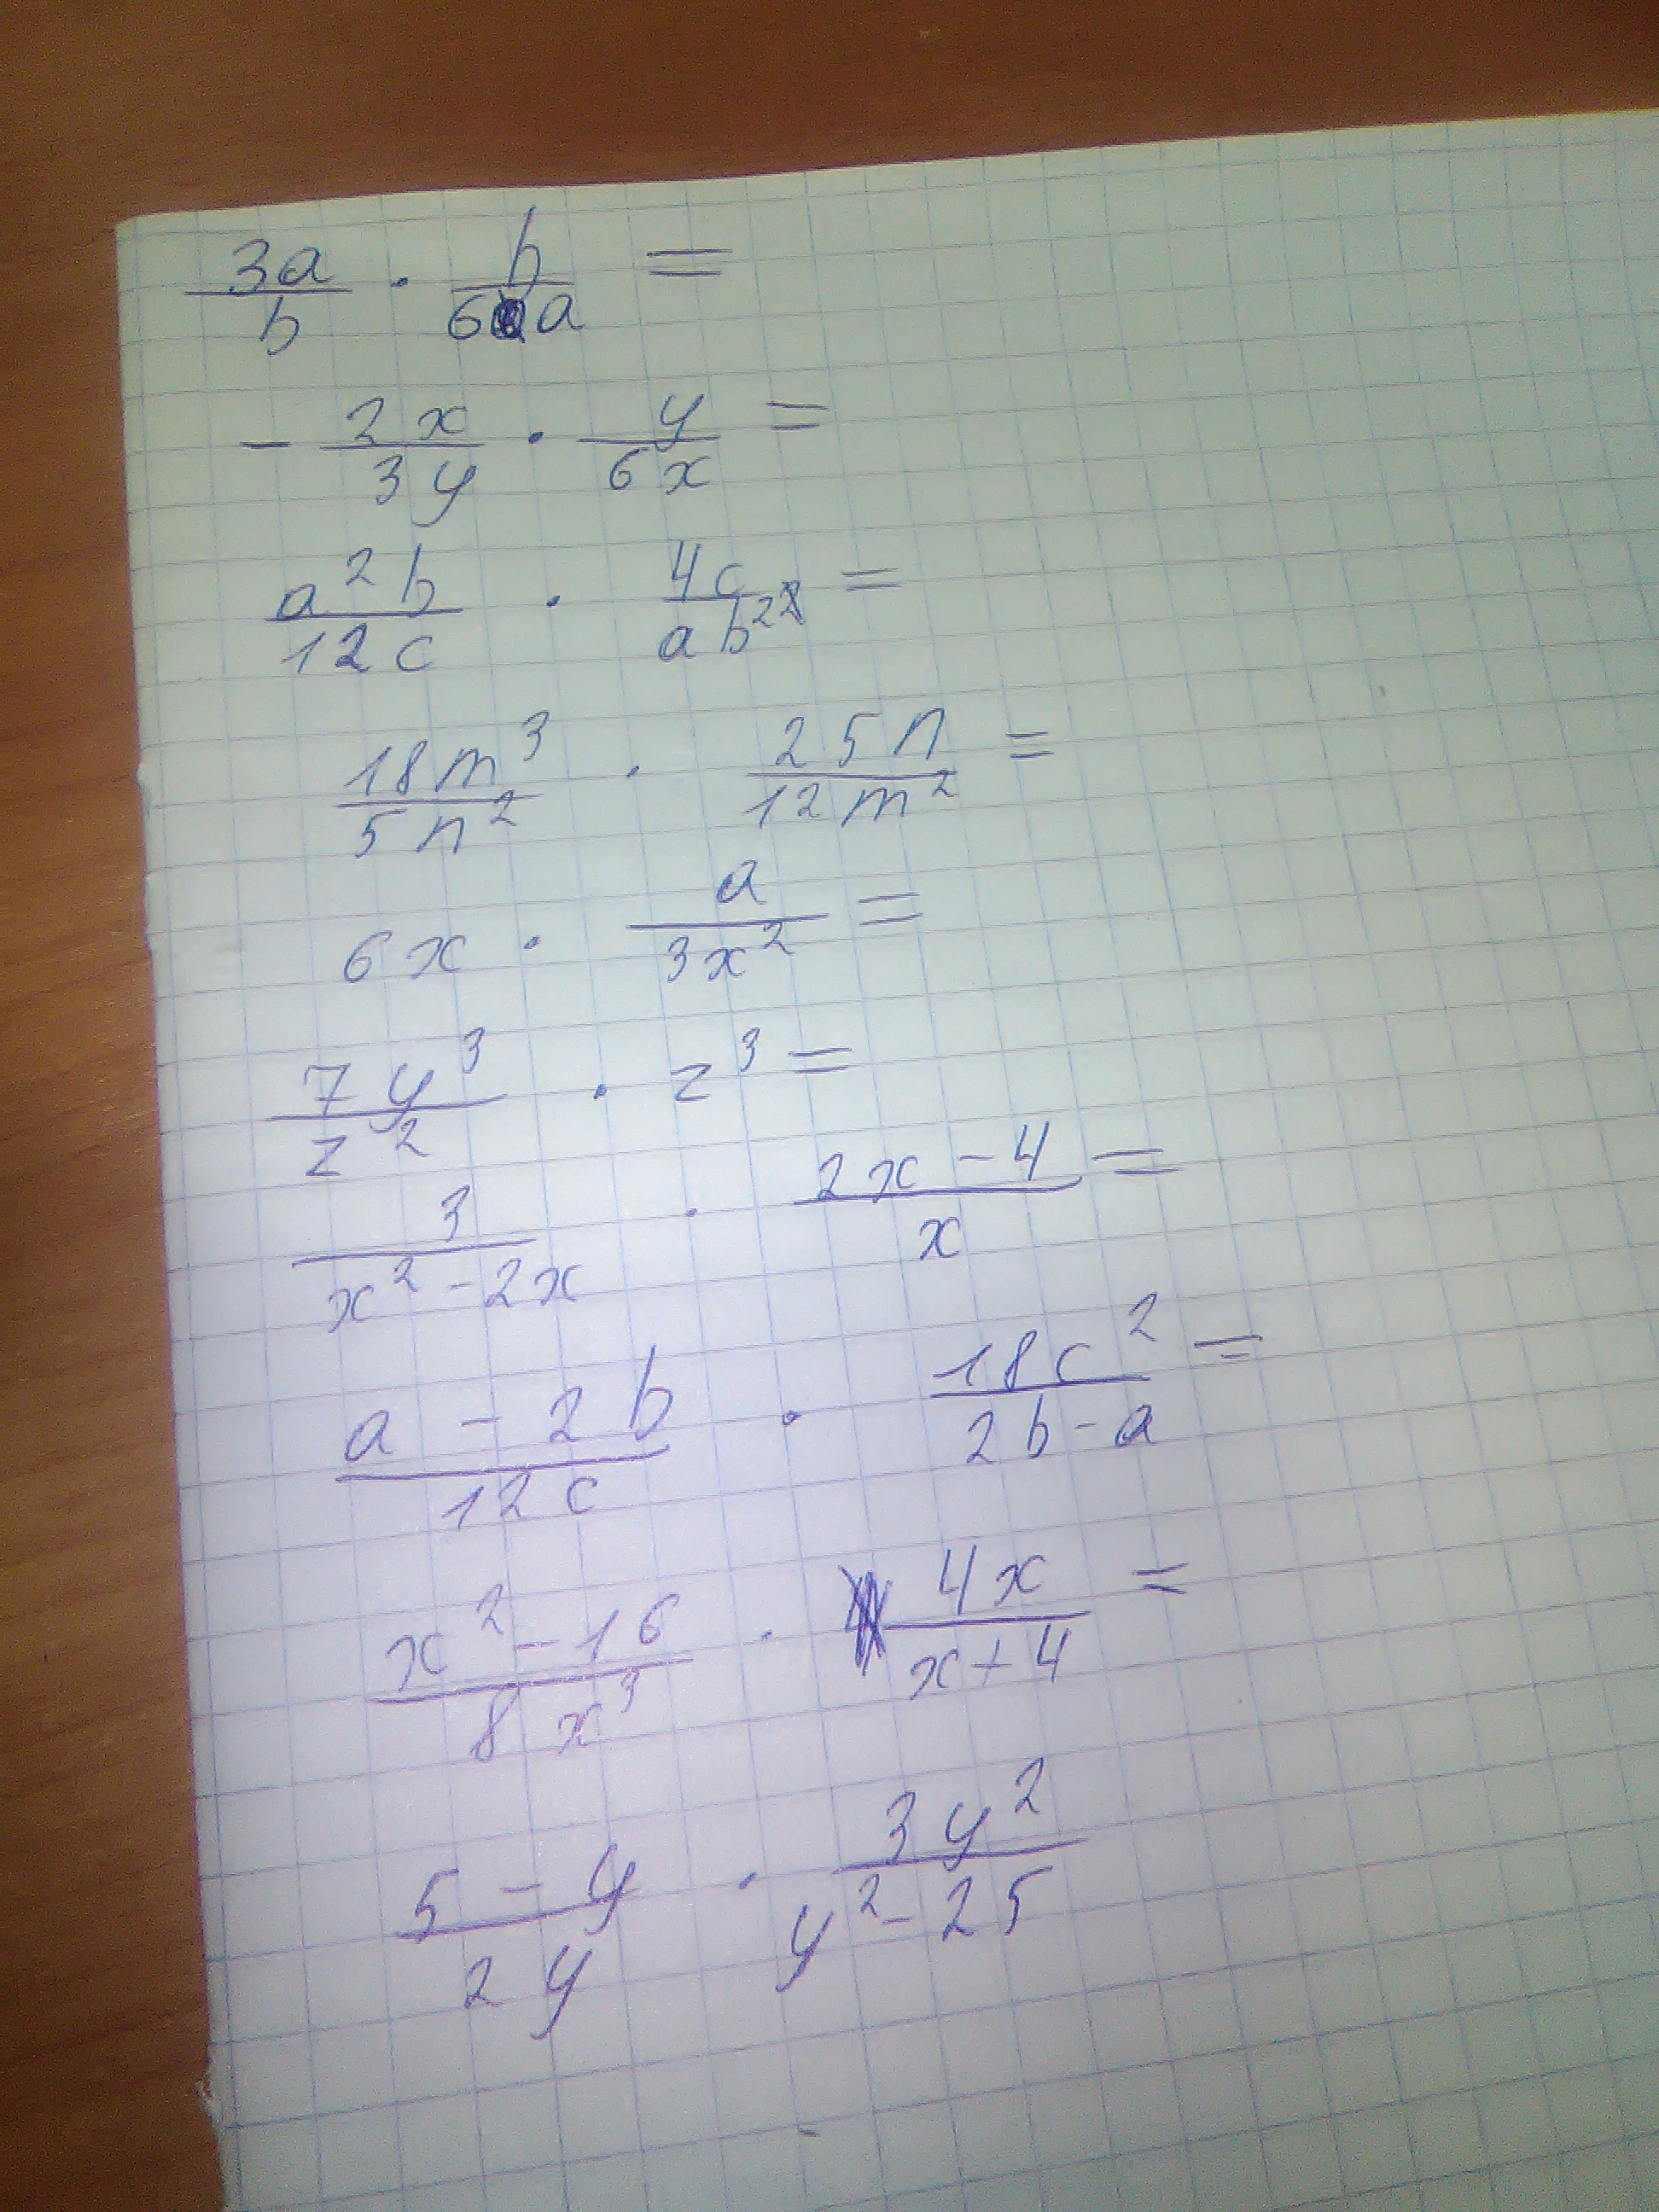 3a/b · b/6a =
- 2x/3y · y/6x =
a²b/12c · 4c/ab² =
18m³/5n² · 25n/12m² =
6x · a/3x² =
7y³/z² · z³ =
3/(x²-2x) · (2x-4)/x =
(a-2b)/12c · 18c²/(2b-a) =
(x²-16)/8x³ · 4x/(x+4) =
(5-y)/2y · 3y²/(y²-25)